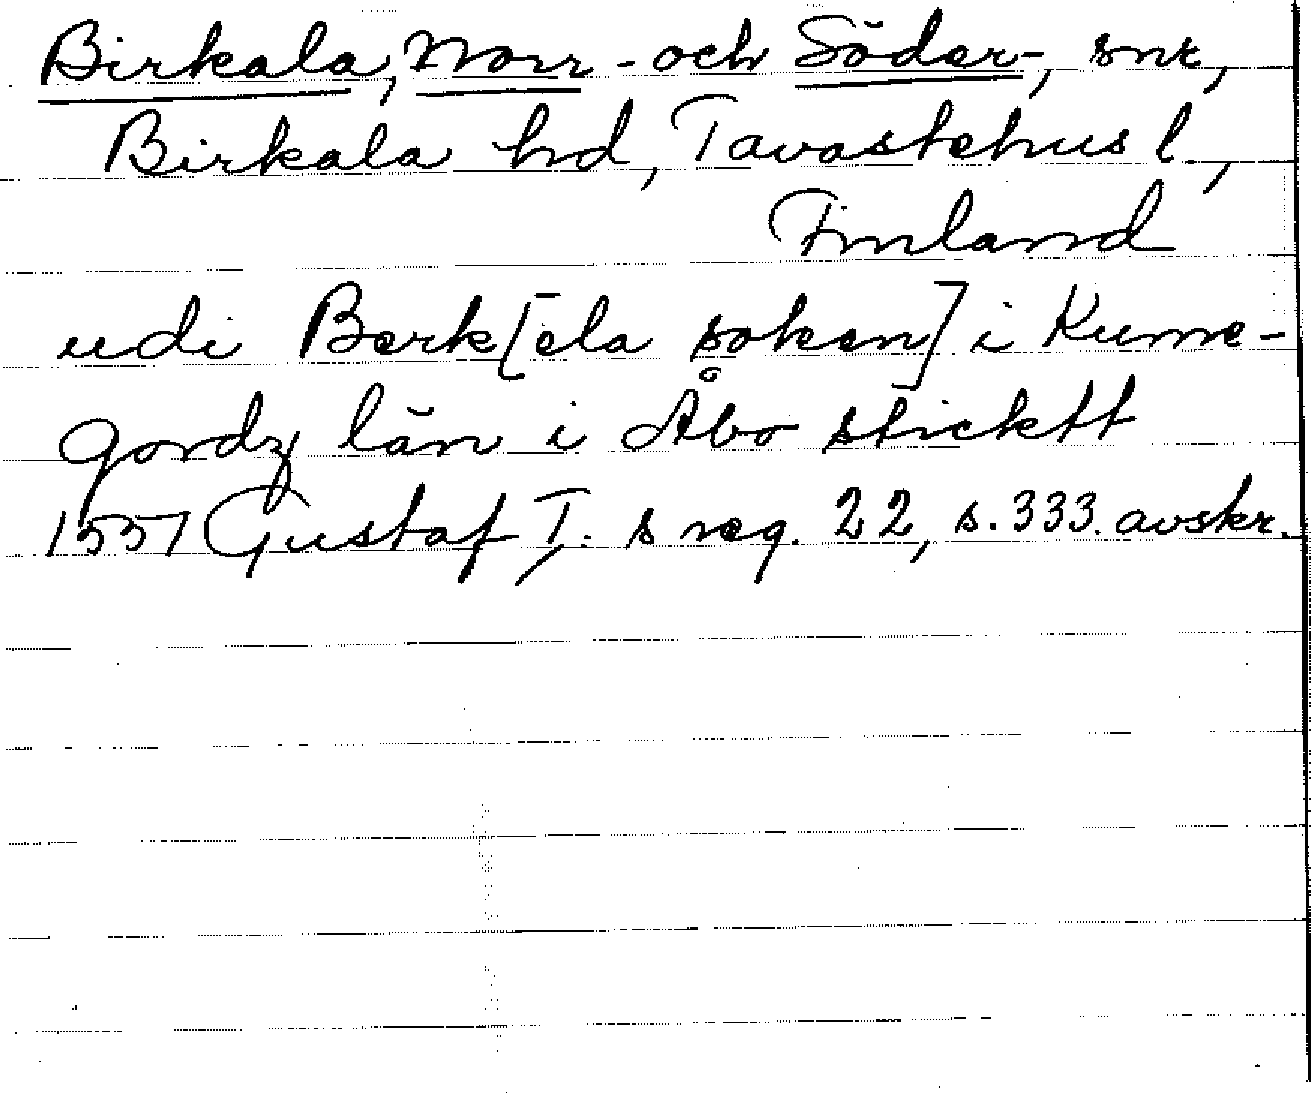 Birkala, Norr- och Söder-, snr,
Birkala hd, Tavastehus l.,
Finland
udi Berk[ela soken] i Kume-
gordz län i Åbo sticktt
1557 Gustaf I:s reg. 22, s. 333. avskr.